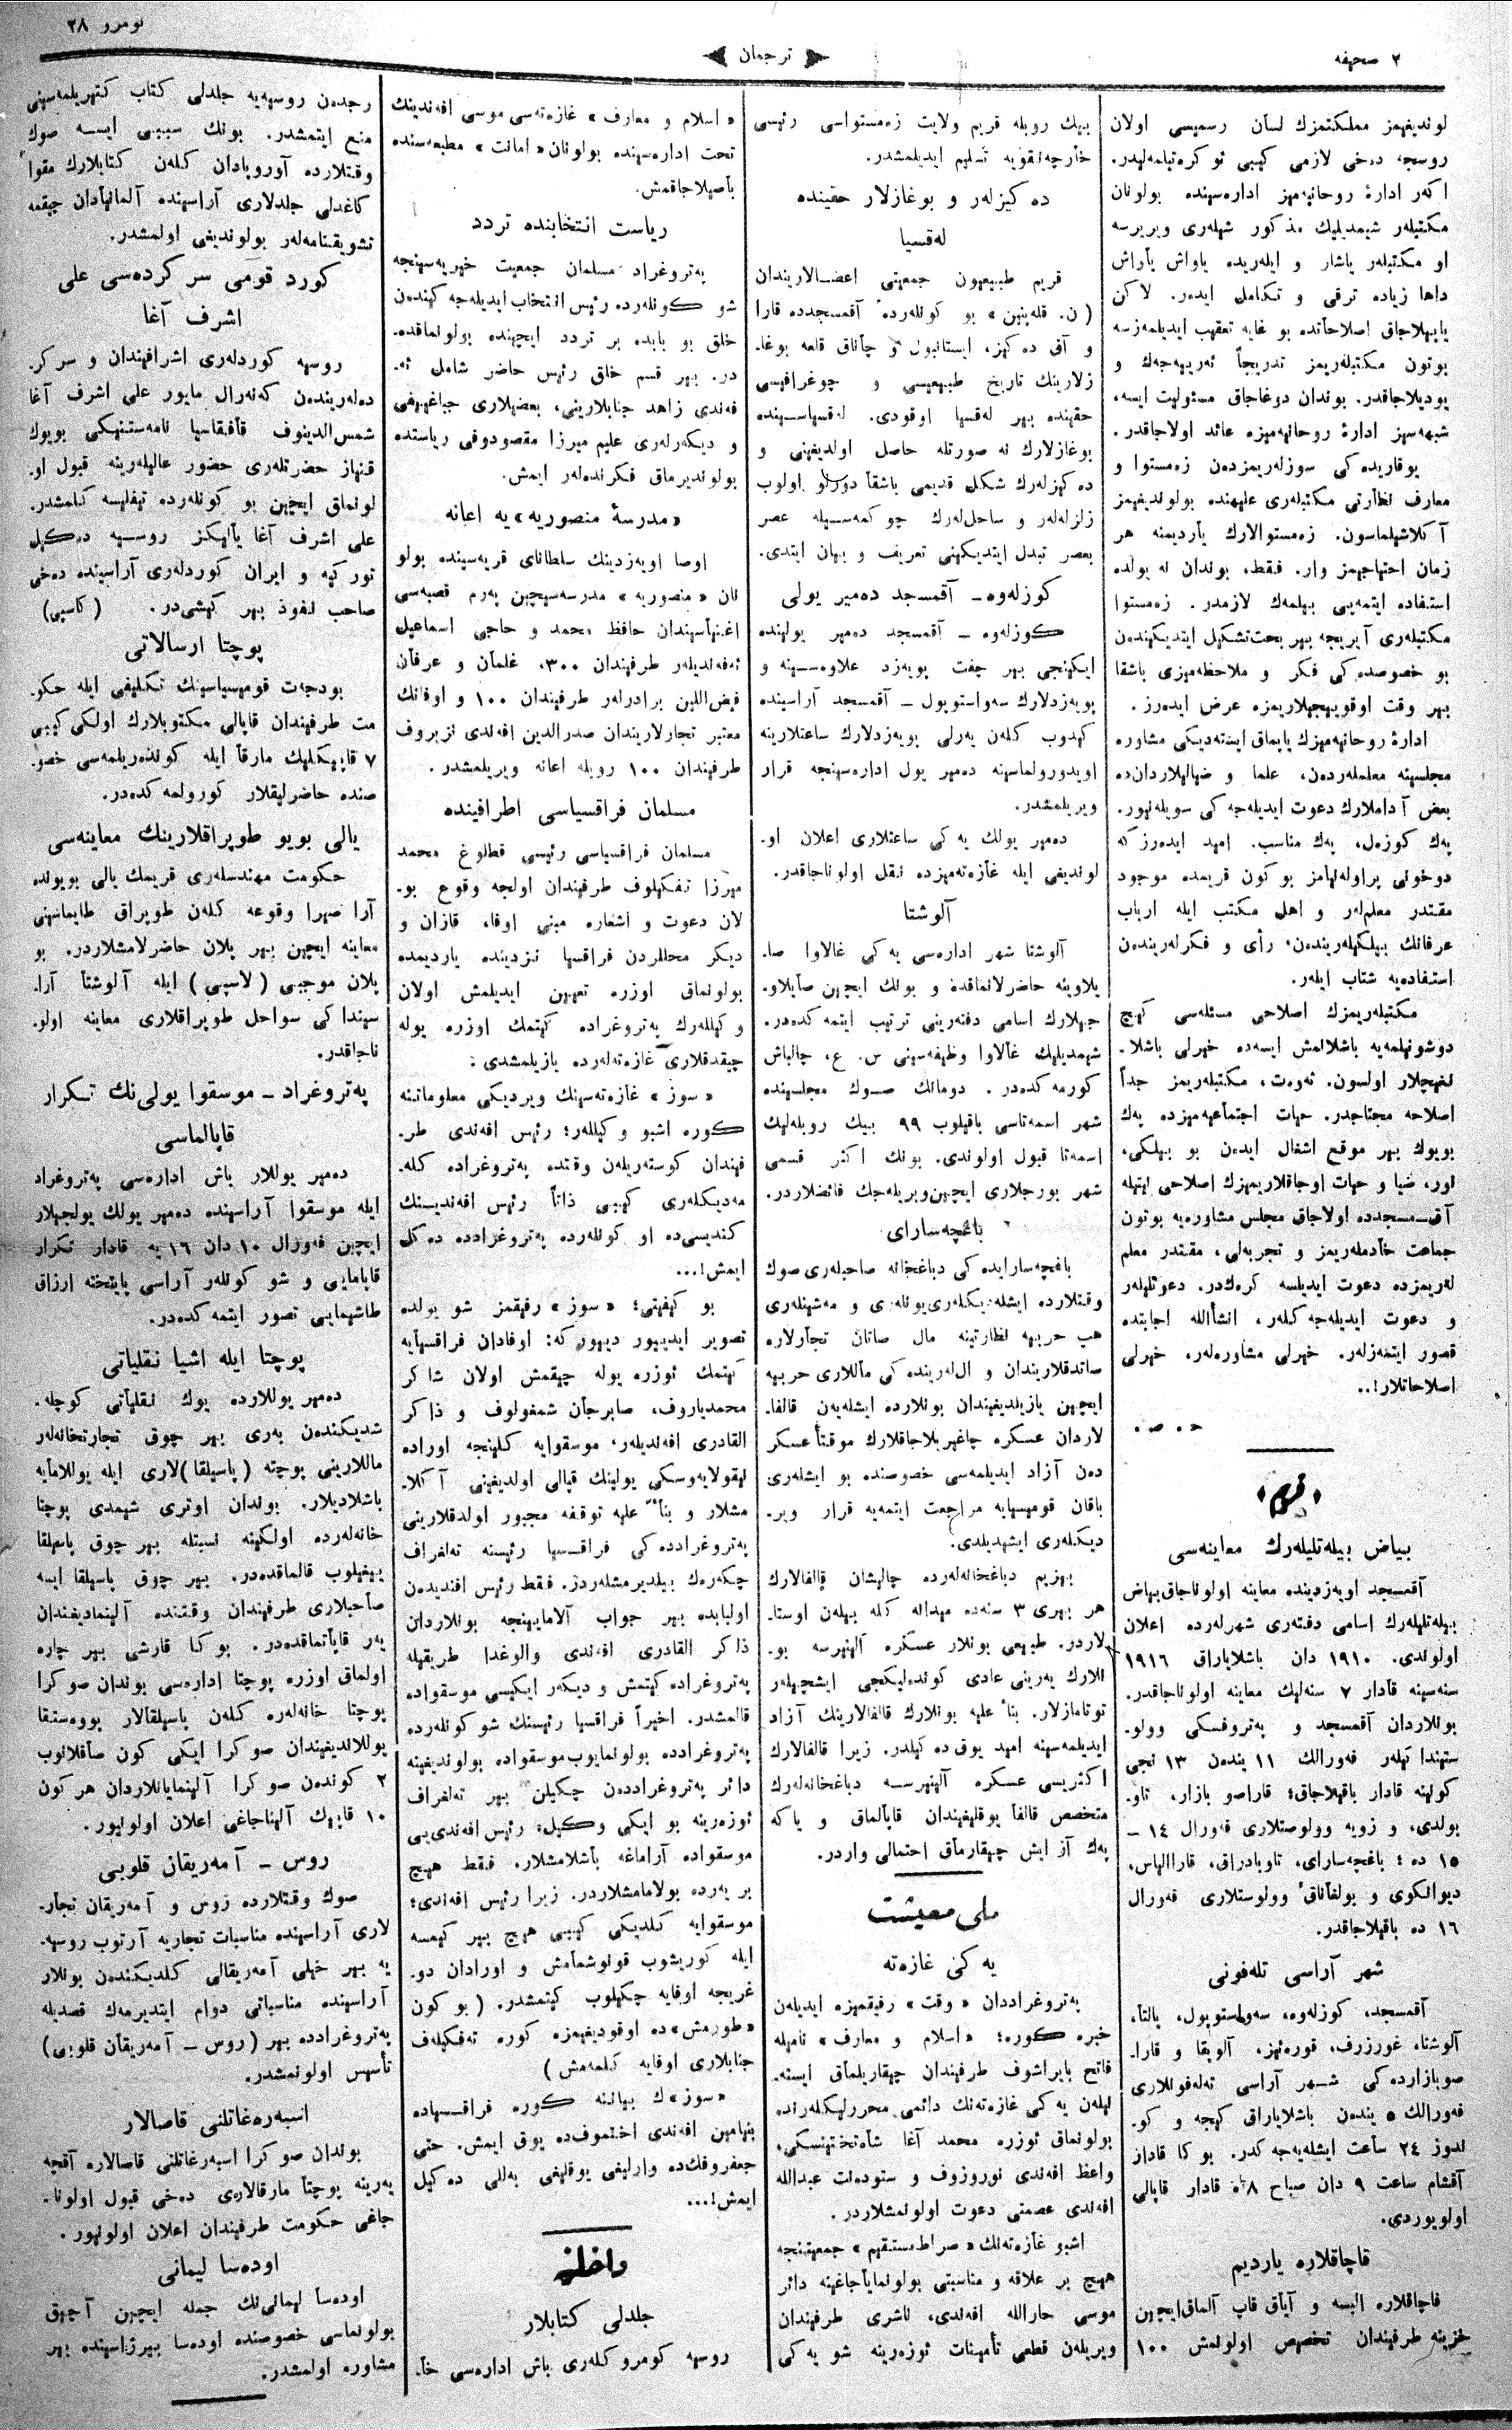 ٢ صحیفه
ترجمان
نومرو ٢٨
لوندیغیمز مملکتمزك لسان رسمیسی اولان
روسجه دخی لازمی کیبی ئوکره‌تیلمه‌لیدر.
اکه‌ر ادارۀ روحانیه‌میز اداره‌سینده بولونان
مکتبلر شیمدیلیك مذکور شیلەری ویریرسه
او مکتبلەر یاشار و ایلەریده یاواش یاواش
داها زیاده ترقی و تکامل ایده‌ر. لاکن
یاپیلاجاق اصلاحاتده بو غایه تعقیب ایدیلمه‌زسه
بوتون مکتبلەریمز تدریجاً ئەرییه‌جه‌ك و
یودیلاجاقدر. بوندان دوغاجاق مسئولیت ایسه،
شبهه‌سیز ادارۀ روحانیه‌میزه عائد اولاجاقدر.
یوقاریده‌کی سوزلەریمزدن زه‌مستوا و
معارف نظارتی مکتبلەری علیهنده بولوندیغیمز
آکلاشیلماسون. زه‌مستوالارك یاردیمنه هر
زمان احتیاجیمز وار. فقط، بوندان نه یولده
استفاده ایتمه‌یی بیلمه‌ك لازمدر. زه‌مستوا
مکتبلەری آیریجه بیر بحث تشکیل ایتدیکیندن
بو خصوصده‌کی فکر و ملاحظه‌میزی باشقا
بیر وقت اوقویجیلاریمزه عرض ایده‌رز.
ادارۀ روحانیه‌میزك یاپماق ایسته‌دیکی مشاوره
مجلسینه معلملەردن، علما و ضیالیلاردان‌ده
بعض آداملارك دعوت ایدیله‌جه‌کی سویله‌نیور.
په‌ك کوزه‌ل، په‌ك مناسب. امید ایده‌رز که
دوخونی پراوله‌نیامز بو کون قریمده موجود
مقتدر معلملەر و اهل مکتب ایله ارباب
عرفانك بیلکیلەریندن، رأی و فکرلەریندن
استفاده‌یه شتاب ایلەر.
مکتبلەریمزك اصلاحی مسئله‌سی کیچ
دوشونیلمه‌یه باشلانمش ایسه‌ده خیرلی باشلا-
نغیچلار اولسون. ئەوەت، مکتبلەریمز جداً
اصلاحه محتاجدر. حیات اجتماعیه‌میزده په‌ك
بویوك بیر موقع اشغال ایده‌ن بو بیلکی،
نور، ضیا و حیات اوجاقلاریمیزك اصلاحی نیتیله
آق‌مسجدده اولاجاق مجلس مشاوره‌یه بوتون
جماعت خادملەریمز و تجربه‌لی، مقتدر معلم
لەریمزده دعوت ایدیلسه کره‌كدر. دعوتلیلەر
و دعوت ایدیله‌جه‌كلەر، انشأالله اجابتده
قصور ایتمه‌زلەر. خیرلی مشاوره‌لەر، خیرلی
اصلاحاتلار!..
ح. ص.
قریم
بیاض بیله‌تلیلەرك معاینه‌سی
آقمسجد اویه‌زدینده معاینه اولوناجاق بیاض
بیله‌تلیلەرك اسامی دفتەری شهرلەرده اعلان
اولوندی. ١٩١٠ دان باشلایاراق ١٩١٦
سنه‌سینه قادار ٧ سنه‌لیك معاینه اولوناجاقدر.
بونلاردان آقمسجد و په‌تروفسکی وولو-
ستیندا کیلەر فەورالك ١١ یندن ١٣ نجی
کونینه قادار باقیلاجاق؛ قاراصو بازار، تاو-
بولدی، و زویه وولوستلاری فەورال ١٤ –
١٥ ده؛ باغچه‌سارای، تاوبادراق، قاراالیاس،
دیوانکوی و بولغاناق وولوستلاری فەورال
١٦ ده باقیلاجاقدر.
شهر آراسی تله‌فونی
آقمسجد، کوزله‌وه، سه‌واستوپول، یالتا،
آلوشتا، غورزوف، قوره‌ئیز، آلوپقا و قارا-
صوبازارده‌کی شهر آراسی تەلەفونلاری
فەورالك ٥ یندن باشلایاراق کیجه و کو-
ندوز ٢٤ ساعت ایشله‌یه‌جه‌کدر. بوکا قادار
آقشام ساعت ٩ دان صباح ٨ ه قادار قاپالی
اولویوردی.
قاچاقلاره یاردیم
قاچاقلاره البسه و آیاق قاپ آلماق ایچین
خزینه طرفیندان تخصیص اولونمش ١٠٠
بیك روبله قریم ولایت زه‌مستواسی رئیسی
خارچه‌نقویه تسلیم ایدیلمشدر.
ده‌کیزلەر و بوغازلار حقینده
له‌قسیا
قریم طبیعیون جمعیتی اعضالاریندان
(ن. قله‌پنین» بو کونلەرده آقمسجدده قارا
و آق ده‌کیز، ایستانبول و چاناق قلعه بوغا-
زلارینك تاریخ طبیعیسی و جوغرافیسی
حقینده بیر له‌قسیا اوقودی. له‌قسیاسینده
بوغازلارك نه صورتله حاصل اولدیغینی و
ده‌کیزلەرك شکل قدیمی باشقا دورلو اولوب
زلزله‌لەر و ساحللەرك چوکمه‌سیله عصر
بعصر تبدل ایتدیکینی تعریف و بیان ایتدی.
کوزله‌وه – آقمسجد ده‌میر یولی
کوزله‌وه – آقمسجد ده‌میر یولینده
ایکینجی بیر جفت پویه‌زد علاوه‌سینه و
پویه‌زدلارك سه‌واستوپول – آقمسجد آراسینده
کیدوب کله‌ن یەرلی پویه‌زدلارك ساعتلارینه
اویدورولماسینه ده‌میر یول اداره‌سینجه قرار
ویریلمشدر.
ده‌میر یولك یه‌کی ساعتلاری اعلان او-
لوندیغی ایله غازه‌ته‌میزده نقل اولوناجاقدر.
آلوشتا
آلوشتا شهر اداره‌سی یه‌کی غالاوا صا-
یلاوینه حاضرلانماقده و بونك ایچین صایلاو-
جیلارك اسامی دفتەرینی ترتیب ایتمه‌کده‌در.
شیمدیلیك غالاوا وظیفه‌سینی س. ع. چالباش
کورمه‌کده‌در. دومانك صوك مجلسینده
شهر اسمه‌تاسی باقیلوب ٩٩ بیك روبله‌لیك
اسمه‌تا قبول اولوندی. بونك اکثر قسمی
شهر بورجلاری ایچین ویریله‌جك فائضلاردر.
باغچه‌سارای
باغچه‌سارایده‌کی دباغخانه صاحبلەری صوك
وقتلارده ایشله‌دیکلەری یونلەری و مه‌شینلەری
هپ حربیه نظارتینه مال صاتان تجارلاره
صاتدقلاریندان و اللەرینده‌کی ماللاری حربیه
ایچین یازیلدیغیندان بونلارده ایشله‌یه‌ن قالفا-
لاردان عسکره چاغیریلاجاقلارك موقتاً عسکر
دەن آزاد ایدیلمه‌سی خصوصنده بو ایشلەری
باقان قومیسیایه مراجعت ایتمه‌یه قرار ویر-
دیکلەری ایشیدیلدی.
بیزیم دباغخانه‌لەرده چالیشان قالفالارك
هر بیری ٣ سنه‌ده میدانه کله بیله‌ن اوستا-
لاردر. طبیعی بونلار عسکره آلینیرسه بو-
نلارك یەرینی عادی کونده‌لیکجی ایشچیلەر
توتامازلار. بناءً علیه بونلارك قالفالارینك آزاد
ایدیلمه‌سینه امید یوق ده‌کیلدر. زیرا قالفالارك
اکثریسی عسکره آلینیرسه دباغخانه‌لەرك
متخصص قالفا یوقلیغیندان قاپانماق و یاکه
په‌ك آز ایش چیقارماق احتمالی واردر.
ملی معیشت
یه‌کی غازه‌ته
په‌تروغراددان «وقت» رفیقمیزه ایدیله‌ن
خبره کوره؛ «اسلام و معارف» نامیله
فاتح بایراشوف طرفیندان چیقاریلماق ایسته-
نیله‌ن یه‌کی غازه‌ته‌نك دائمی محررلیکلەرنده
بولونماق ئوزره محمد آغا شاه‌تختینسکی،
واعظ افه‌ندی نوروزوف و ستوده‌نت عبدالله
افه‌ندی عصمتی دعوت اولونمشلاردر.
اشبو غازه‌ته‌نك «صراط مستقیم» جمعیتنجه
هیچ بر علاقه و مناسبتی بولونمایاجاغینه دائر
موسی جارالله افه‌ندی، ناشری طرفیندان
ویریله‌ن قطعی تأمینات ئوزه‌رینه شو یه‌کی
«اسلام و معارف» غازه‌ته‌سی موسی افه‌ندینك
تحت اداره‌سینده بولونان «امانت» مطبعه‌سنده
باصیلاجاقمش.
ریاست انتخابنده تردد
په‌تروغراد مسلمان جمعیت خیریه‌سینجه
شو کونلەرده رئیس انتخاب ایدیله‌جه‌کیندن
خلق بو بابده بر تردد ایچینده بولونماقده-
در. بیر قسم خلق رئیس حاضر شامل ئه-
فه‌ندی زاهد جنابلارینی، بعضیلاری جباغییفی
و دیکه‌رلەری علیم میرزا مقصودوفی ریاستده
بولوندیرماق فکرنده‌لەر ایمش.
«مدرسۀ منصوریه» یه اعانه
اوصا اویه‌زدینك سلطانای قریه‌سینده بولو
نان «منصوریه» مدرسه‌سیچین په‌رم قصبه‌سی
اغنیاسیندان حافظ محمد و حاجی اسماعیل
ئەفەندیلەر طرفیندان ٣٠٠، غلمان و عرفان
فیض‌اللین برادرلەر طرفیندان ١٠٠ و اوفانك
معتبر تجارلاریندان صدرالدین افه‌ندی نزیروف
طرفیندان ١٠٠ روبله اعانه ویریلمشدر.
مسلمان فراقسیاسی اطرافینده
مسلمان فراقسیاسی رئیسی قطلوغ محمد
میرزا تفکیلوف طرفیندان اولجه وقوع بو-
لان دعوت و اشعاره مبنی اوفا، قازان و
دیکر محللردن فراقسیا نزدینده یاردیمده
بولونماق اوزره تعیین ایدیلمش اولان
وکیللەرك په‌تروغراده کیتمك اوزره یوله
چیقدقلاری غازه‌ته‌لەرده یازیلمشدی.
«سوز» غازه‌ته‌سینك ویردیکی معلوماتنه
کوره اشبو وکیللەر؛ رئیس افه‌ندی طر-
فیندان کوسته‌ریله‌ن وقتده په‌تروغراده کله-
مه‌دیکلەری کیبی ذاتاً رئیس افه‌ندینك
کندیسی‌ده او کونلەرده په‌تروغرادده ده‌کل
ایمش!...
بو کیفیتی؛ «سوز» رفیقمز شو یولده
تصویر ایدییور دییور که: اوفادان فراقسیایه
کیتمك ئوزره یوله چیقمش اولان شاکر
محمدیاروف، صابرجان شمغولوف و ذاکر
القادری افه‌ندیلەر، موسقوایه کلینجه اوراده
نیقولایه‌وسکی یولینك قپالی اولدیغینی آکلا-
مشلار و بناءً علیه توقفه مجبور اولدقلارینی
په‌تروغرادده‌کی فراقسیا رئیسنه تەلغراف
چکه‌رك بیلدیرمشلەردر. فقط رئیس افندیدەن
اولبابده بیر جواب آلامایینجه بونلاردان
ذاکر القادری افه‌ندی والوغدا طریقیله
په‌تروغراده کیتمش و دیکەر ایکیسی موسقواده
قالمشدر. اخیراً فراقسیا رئیسنك شو کونلەرده
په‌تروغرادده بولونمایوب موسقواده بولوندیغینه
دائر په‌تروغراددەن چکیلن بیر تەلغراف
ئوزه‌رینه بو ایکی وکیل، رئیس افه‌ندی‌یی
موسقواده آراماغه باشلامشلار. فقط هیچ
بر یەرده بولامامشلاردر. زیرا رئیس افه‌ندی؛
موسقوایه کلدیکی کیبی هیچ بیر کیمسه
ایله کوریشوب قونوشمامش و اورادان دو-
غریجه اوفایه چکیلوب کیتمشدر. (بو کون
«طورمش» ده اوقودیغیمزه کوره تەفکیلەف
جنابلاری اوفایه کلمه‌مش)
«سوز» ك بیاننه کوره فراقسیاده
بنیامین افه‌ندی اختموف‌ده یوق ایمش. حتی
جعفروفك‌ده وارلیغی یوقلیغی به‌للی ده‌کیل
ایمش!...
داخلیه
جلدلی کتابلار
روسیه کومروکلەری باش اداره‌سی خا-
رجدەن روسیه‌یه جلدلی کتاب کتیریلمه‌سینی
منع ایتمشدر. بونك سببی ایسه صوك
وقتلارده آوروپادان کله‌ن کتابلارك مقوا
کاغدلی جلدلاری آراسینده آلمانیادان چیقمه
تشویقنامه‌لەر بولوندیغی اولمشدر.
کورد قومی سر کرده‌سی علی
اشرف آغا
روسیه کوردلەری اشرافیندان و سر کر-
ده‌لەریندەن که‌نه‌رال مایور علی اشرف آغا
شمس‌الدینوف قافقاسیا نامه‌ستنیکی بویوك
قنیاز حضرتلەری حضور عالیلەرینه قبول او-
لونماق ایچین بو کونلەرده تیفلیسه کلمشدر.
علی اشرف آغا یالیکز روسیه ده‌کیل
تورکیه و ایران کوردلەری آراسینده دەخی
صاحب نفوذ بیر کیشی‌در. (کاسپی)
پوچتا ارسالاتی
بودجه‌ت قومیسیاسینك تکلیفی ایله حکو-
مت طرفیندان قاپالی مکتوبلارك اولکی کیبی
٧ قاپیکلیك مارقا ایله کونده‌ریلمه‌سی خصو-
صنده حاضرلیقلار کورولمه‌کده‌در.
یالی بویو طوپراقلارینك معاینه‌سی
حکومت مهندسلەری قریمك یالی بویونده
آرا صیرا وقوعه کله‌ن طوپراق طایماسینی
معاینه ایچین بیر پلان حاضرلامشلاردر. بو
پلان موجبی (لاسپی) ایله آلوشتا آرا-
سیندا کی سواحل طوپراقلاری معاینه اولو-
ناجاقدر.
په‌تروغراد – موسقوا یولی‌نك تکرار
قاپالماسی
ده‌میر یوللار باش اداره‌سی په‌تروغراد
ایله موسقوا آراسینده ده‌میر یولك یولجیلار
ایچین فەورال ١٠ دان ١٦ یه قادار تکرار
قاپامایی و شو کونلەر آراسی پایتخته ارزاق
طاشیمایی تصور ایتمه‌کده‌در.
پوچتا ایله اشیا نقلیاتی
ده‌میر یوللارده یوك نقلیاتی کوچله-
شدیکندەن به‌ری بیر چوق تجارتخانه‌لەر
ماللارینی پوچته (پاسیلقا)لاری ایله یوللامایه
باشلادیلار. بوندان اوتری شیمدی پوچتا
خانه‌لەرده اولکینه نسبتله بیر چوق پاسیلقا
ییغیلوب قالماقده‌در. بیر چوق پاسیلقا ایسه
صاحبلاری طرفیندان وقتنده آلینمادیغندان
یەر قاپاتماقده‌در. بوکا قارشی بیر چاره
اولماق اوزره پوچتا اداره‌سی بوندان صوکرا
پوچتا خانه‌لەره کله‌ن پاسیلقالار پووه‌ستقا
یوللاندیغیندان صوکرا ایکی کون صاقلانوب
٢ کوندەن صوکرا آلینمایانلاردان هر کون
١٠ قاپیك آلیناجاغی اعلان اولونیور.
روس – آمه‌ریقان قلوبی
صوك وقتلارده روس و آمه‌ریقان تجار-
لاری آراسینده مناسبات تجاریه آرتوب روسیه-
یه بیر خیلی آمه‌ریقالی کلدیکندەن بونلار
آراسینده مناسباتی دوام ایتدیرمه‌ك قصدیله
په‌تروغرادده بیر (روس – آمه‌ریقان قلوبی)
تأسیس اولونمشدر.
اسبه‌ره‌غاتلنی قاصالار
بوندان صوکرا اسبه‌رغاتلنی قاصالاره آقچه
یەرینه پوچتا مارقالاری دەخی قبول اولونا-
جاغی حکومت طرفیندان اعلان اولونیور.
اوده‌سا لیمانی
اوده‌سا لیمانی‌نك جمله ایچین آچیق
بولونماسی خصوصنده اوده‌سا بیرژاسینده بیر
مشاوره اولمشدر.